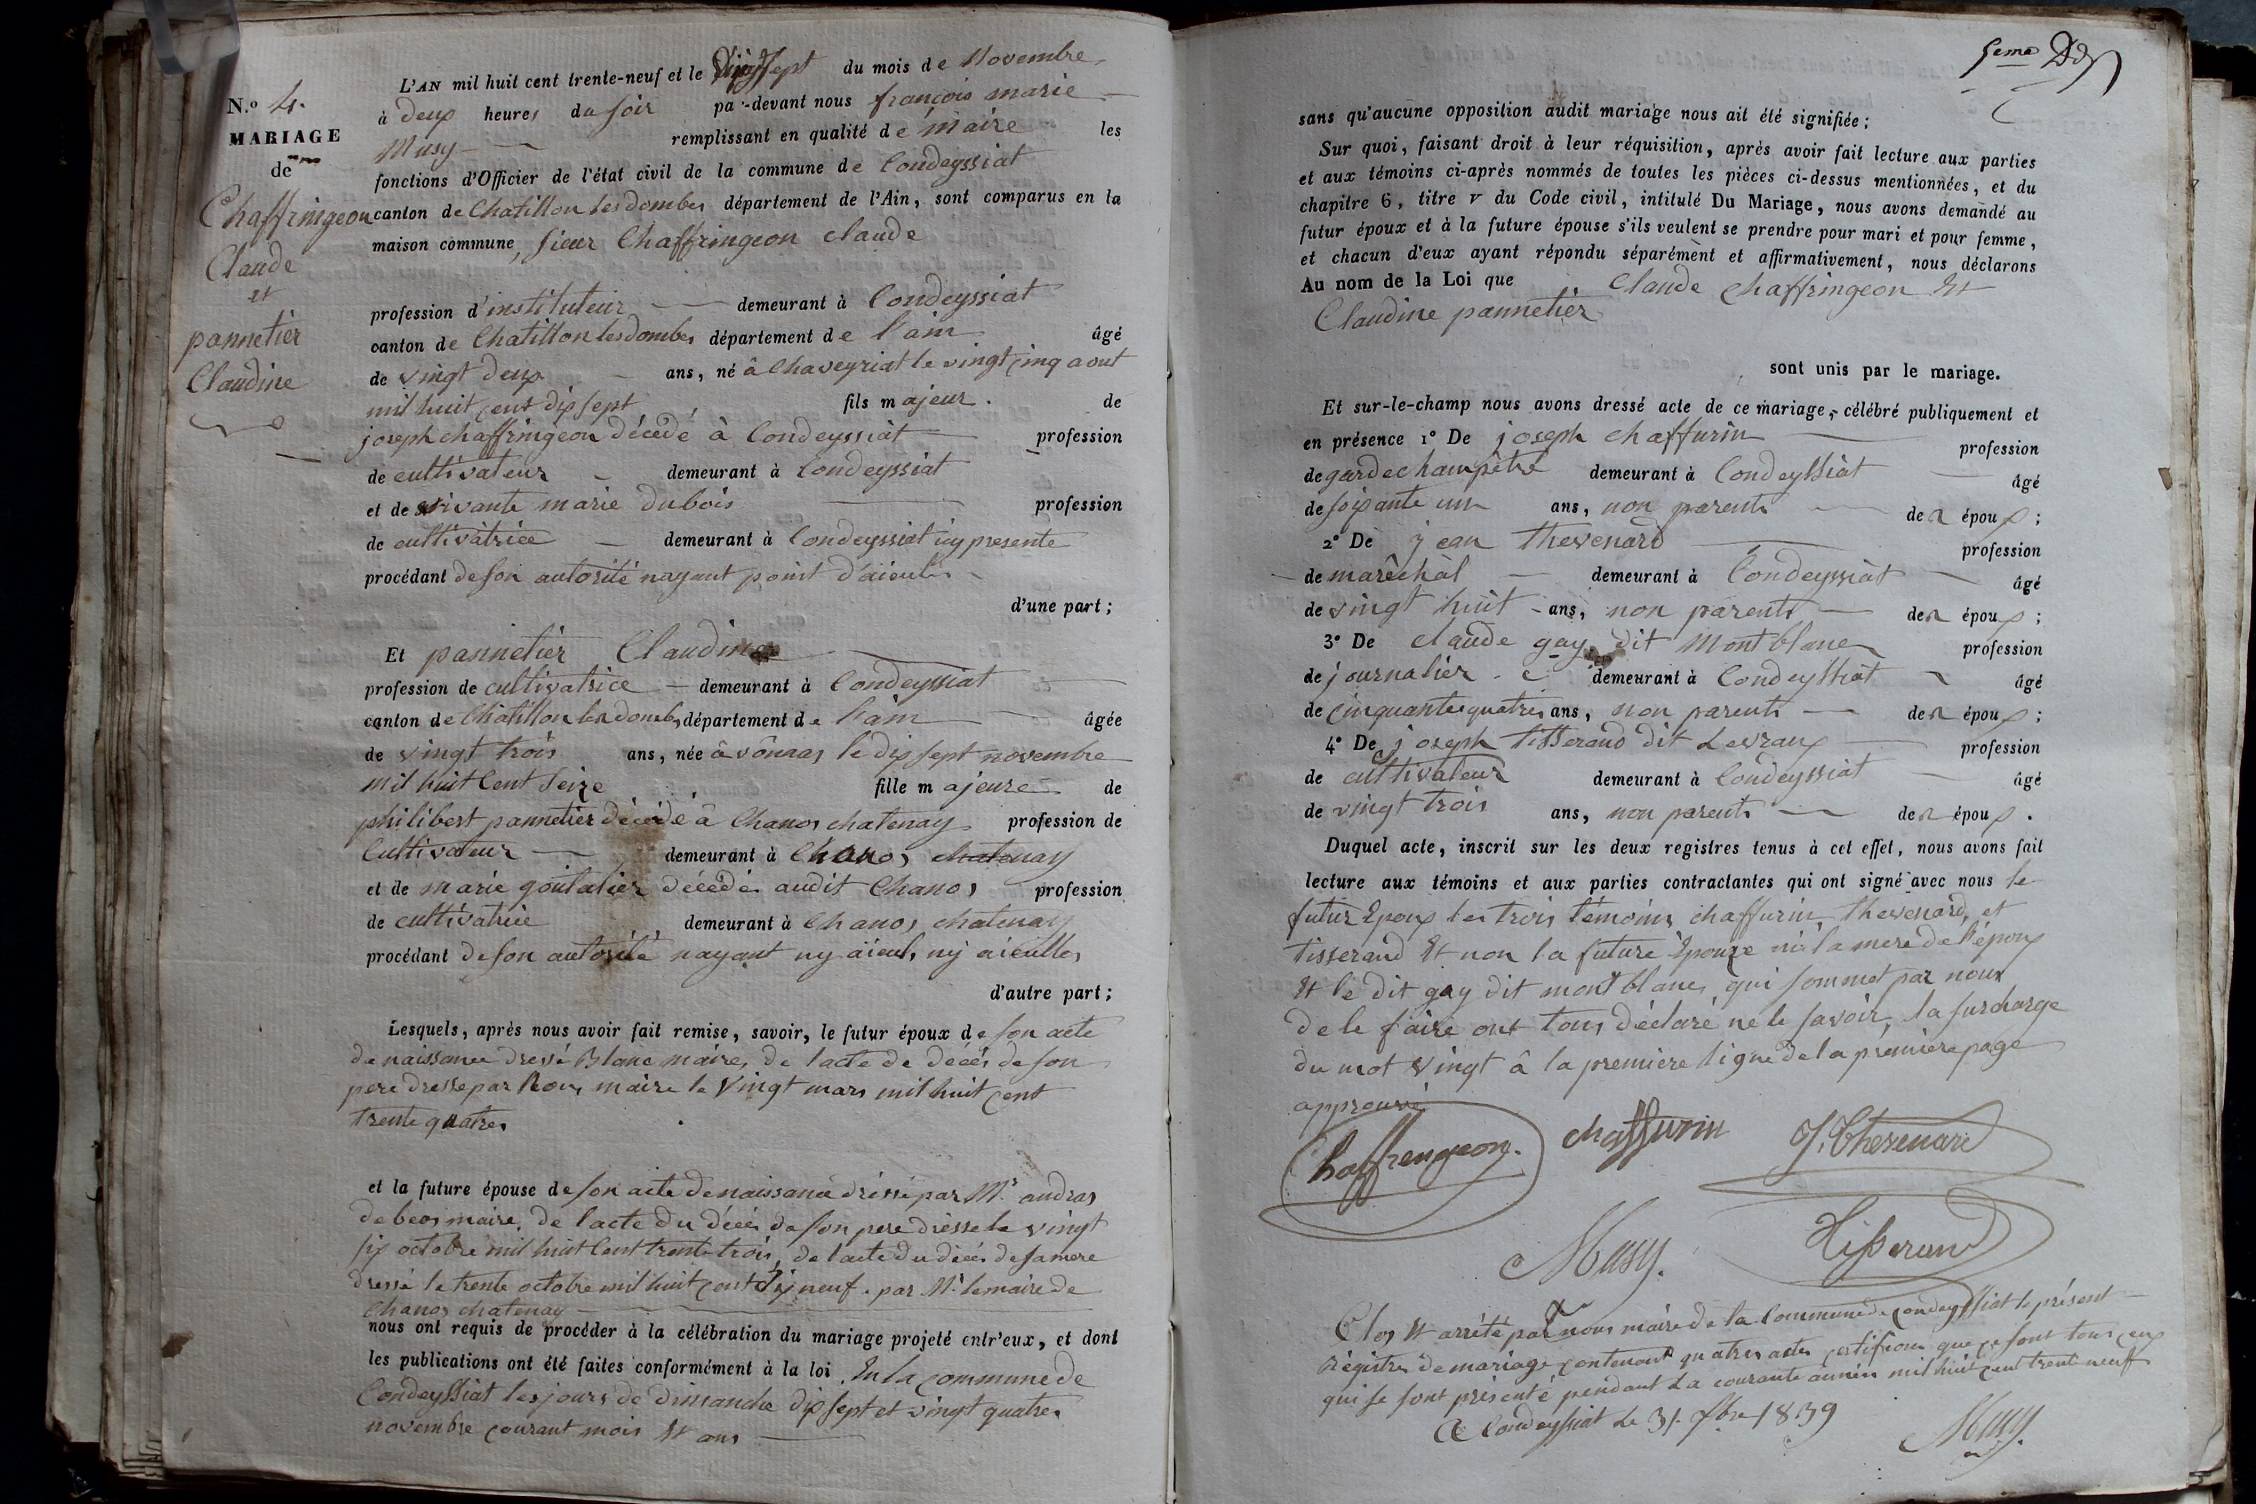 L'AN mil huit cent trente-neuf et le vingt sept du mois de Novembre
N.º 4.
à deux heures du soir par-devant nous françois marie
MARIAGE
Musy remplissant en qualité de maire les
de
fonctions d'Officier de l'état civil de la commune de Condeyssiat
Chaffringeon
canton de Chatillon les dombes département de l'Ain, sont comparus en la
maison commune, sieur Chaffringeon claude
Claude
et
profession d'instituteur demeurant à Condeyssiat
pannetier
canton de Chatillon les dombes département de l'ain âgé
Claudine
de vingt deux ans, né à Chaveyriat le vingt cinq aout
mil huit cent dix sept fils majeur. de
joseph chaffringeon décédé à Condeyssiat profession
de cultivateur demeurant à Condeyssiat
et de vivante marie dubois profession
de cultivatrice demeurant à Condeyssiat icy presente
procédant de son autorité nayant point d'aieuls
d'une part;
Et pannetier Claudine
profession de cultivatrice demeurant à Condeyssiat
canton de Chatillon les dombes département de l'ain âgée
de vingt trois ans, née à vônnas le dix sept novembre
mil huit Cent Seize fille majeure de
philibert pannetier décédé à Chanos chatenay profession de
Cultivateur demeurant à Chanos chatenay
et de marie goutalier décédé audit Chanos profession
de cultivatrice demeurant à Chanos chatenay
procédant de son autorité nayant ny aieuls ny aieulles
d'autre part;
Lesquels, après nous avoir fait remise, savoir, le futur époux de son acte
de naissance dressé Blanc maire, de l'acte de décès de son
pere dresse par Roux maire le vingt mars mil huit cent
trente quatre
et la future épouse de son acte de naissance dressé par Mr andras
de beos maire, de l'acte du décès de son pere dresse le vingt
six octobre mil huit Cent trente trois, de l'acte du décès de sa mere
dressé le trente octobre mil huit cent dix neuf. par Mr le maire de
Chanos chatenay
nous ont requis de procéder à la célébration du mariage projeté entr'eux, et dont
les publications ont été faites conformément à la loi En la commune de
Condeyssiat les jours de dimanche dix sept et vingt quatre
novembre courant mois et ans
5eme
sans qu'aucune opposition audit mariage nous ait été signifiée;
Sur quoi, faisant droit à leur réquisition, après avoir fait lecture aux parties
et aux témoins ci-après nommés de toutes les pièces ci-dessus mentionnées, et du
chapitre 6, titre v du Code civil, intitulé Du Mariage, nous avons demandé au
futur époux et à la future épouse s'ils veulent se prendre pour mari et pour femme,
et chacun d'eux ayant répondu séparément et affirmativement, nous déclarons
Au nom de la Loi que Claude chaffringeon Et
Claudine pannetier
sont unis par le mariage.
Et sur-le-champ nous avons dressé acte de ce mariage, célébré publiquement et
en présence 1º De joseph chaffurin profession
de garde champètre demeurant à Condeyssiat âgé
de soixante un ans, non parents des époux;
2º De jean thevenard profession
de maréchal demeurant à Condeyssiat âgé
de vingt huit ans, non parents des époux;
3º De claude gay dit Montblanc profession
de journalier demeurant à Condeyssiat âgé
de cinquante quatre ans, non parents des époux;
4º De joseph tisserand dit Levraux profession
de cultivateur demeurant à Condeyssiat âgé
de vingt trois ans, non parents des époux.
Duquel acte, inscrit sur les deux registres tenus à cet effet, nous avons fait
lecture aux témoins et aux parties contractantes qui ont signé avec nous le
futur Epoux les trois témoins, chaffurin thevenard, et
tisserand Et non la future Epouze ni la mere de l'époux
Et le dit gay dit mont blanc, qui sommet par nous
de le faire ont tous déclaré ne le savoir, la surcharge
du mot vingt à la première ligne de la première page
approuvé
Chaffrengeon. chaffurin J. Thevenard
Musy. Tisserand
Clos Et arrété par nous maire de la Commune de Condeyssiat le présent
Régistre de mariage contenant quatres actes certifions que ce sont tous ceux
qui se sont présenté pendant La courante année mil huit cent trente neuf
A Condeyssiat Le 31. Xbre 1839
Musy.